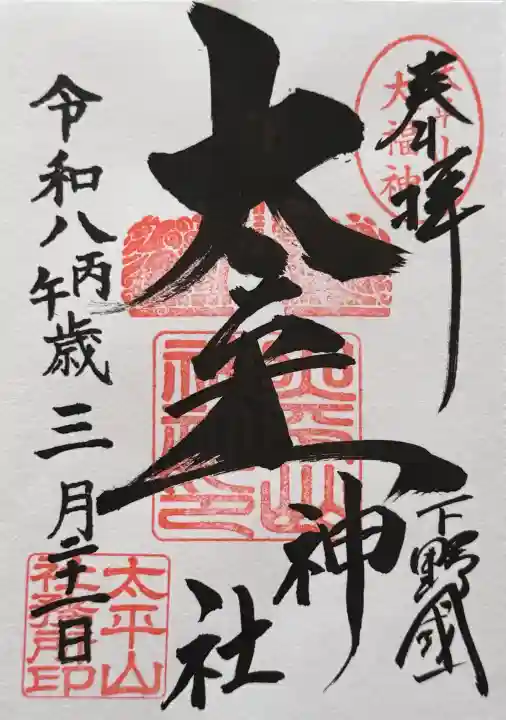 奉拝
太平山
大福神
下野國
太平山
神社
令和八丙午歳三月二十一日
太平山
社務所印